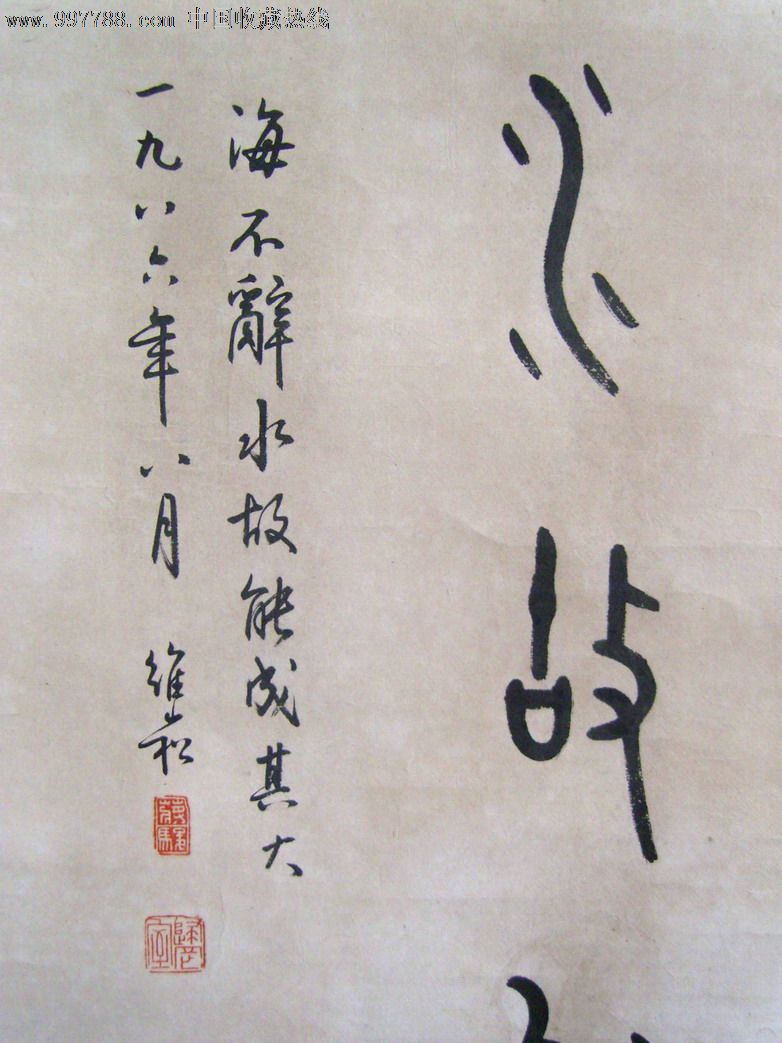 www.997788.com 中国收藏热线
水故
海不辭水故能成其大
一九八六年八月 維崧